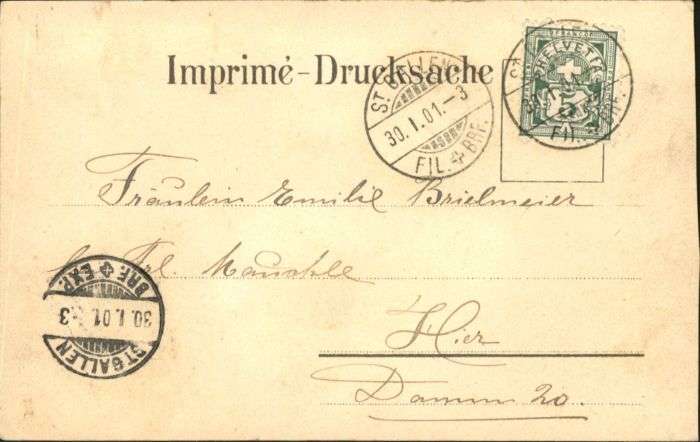 Imprimé-Drucksache
HELVETIA
FRANCO
5
ST. GALLEN
30.I.01.-3
FIL. BRF.
Fräulein Emilie Brielmeier
Frl.
Hier
Damm 20.
BRF EXP.
30.I.01.-3
ST GALLEN